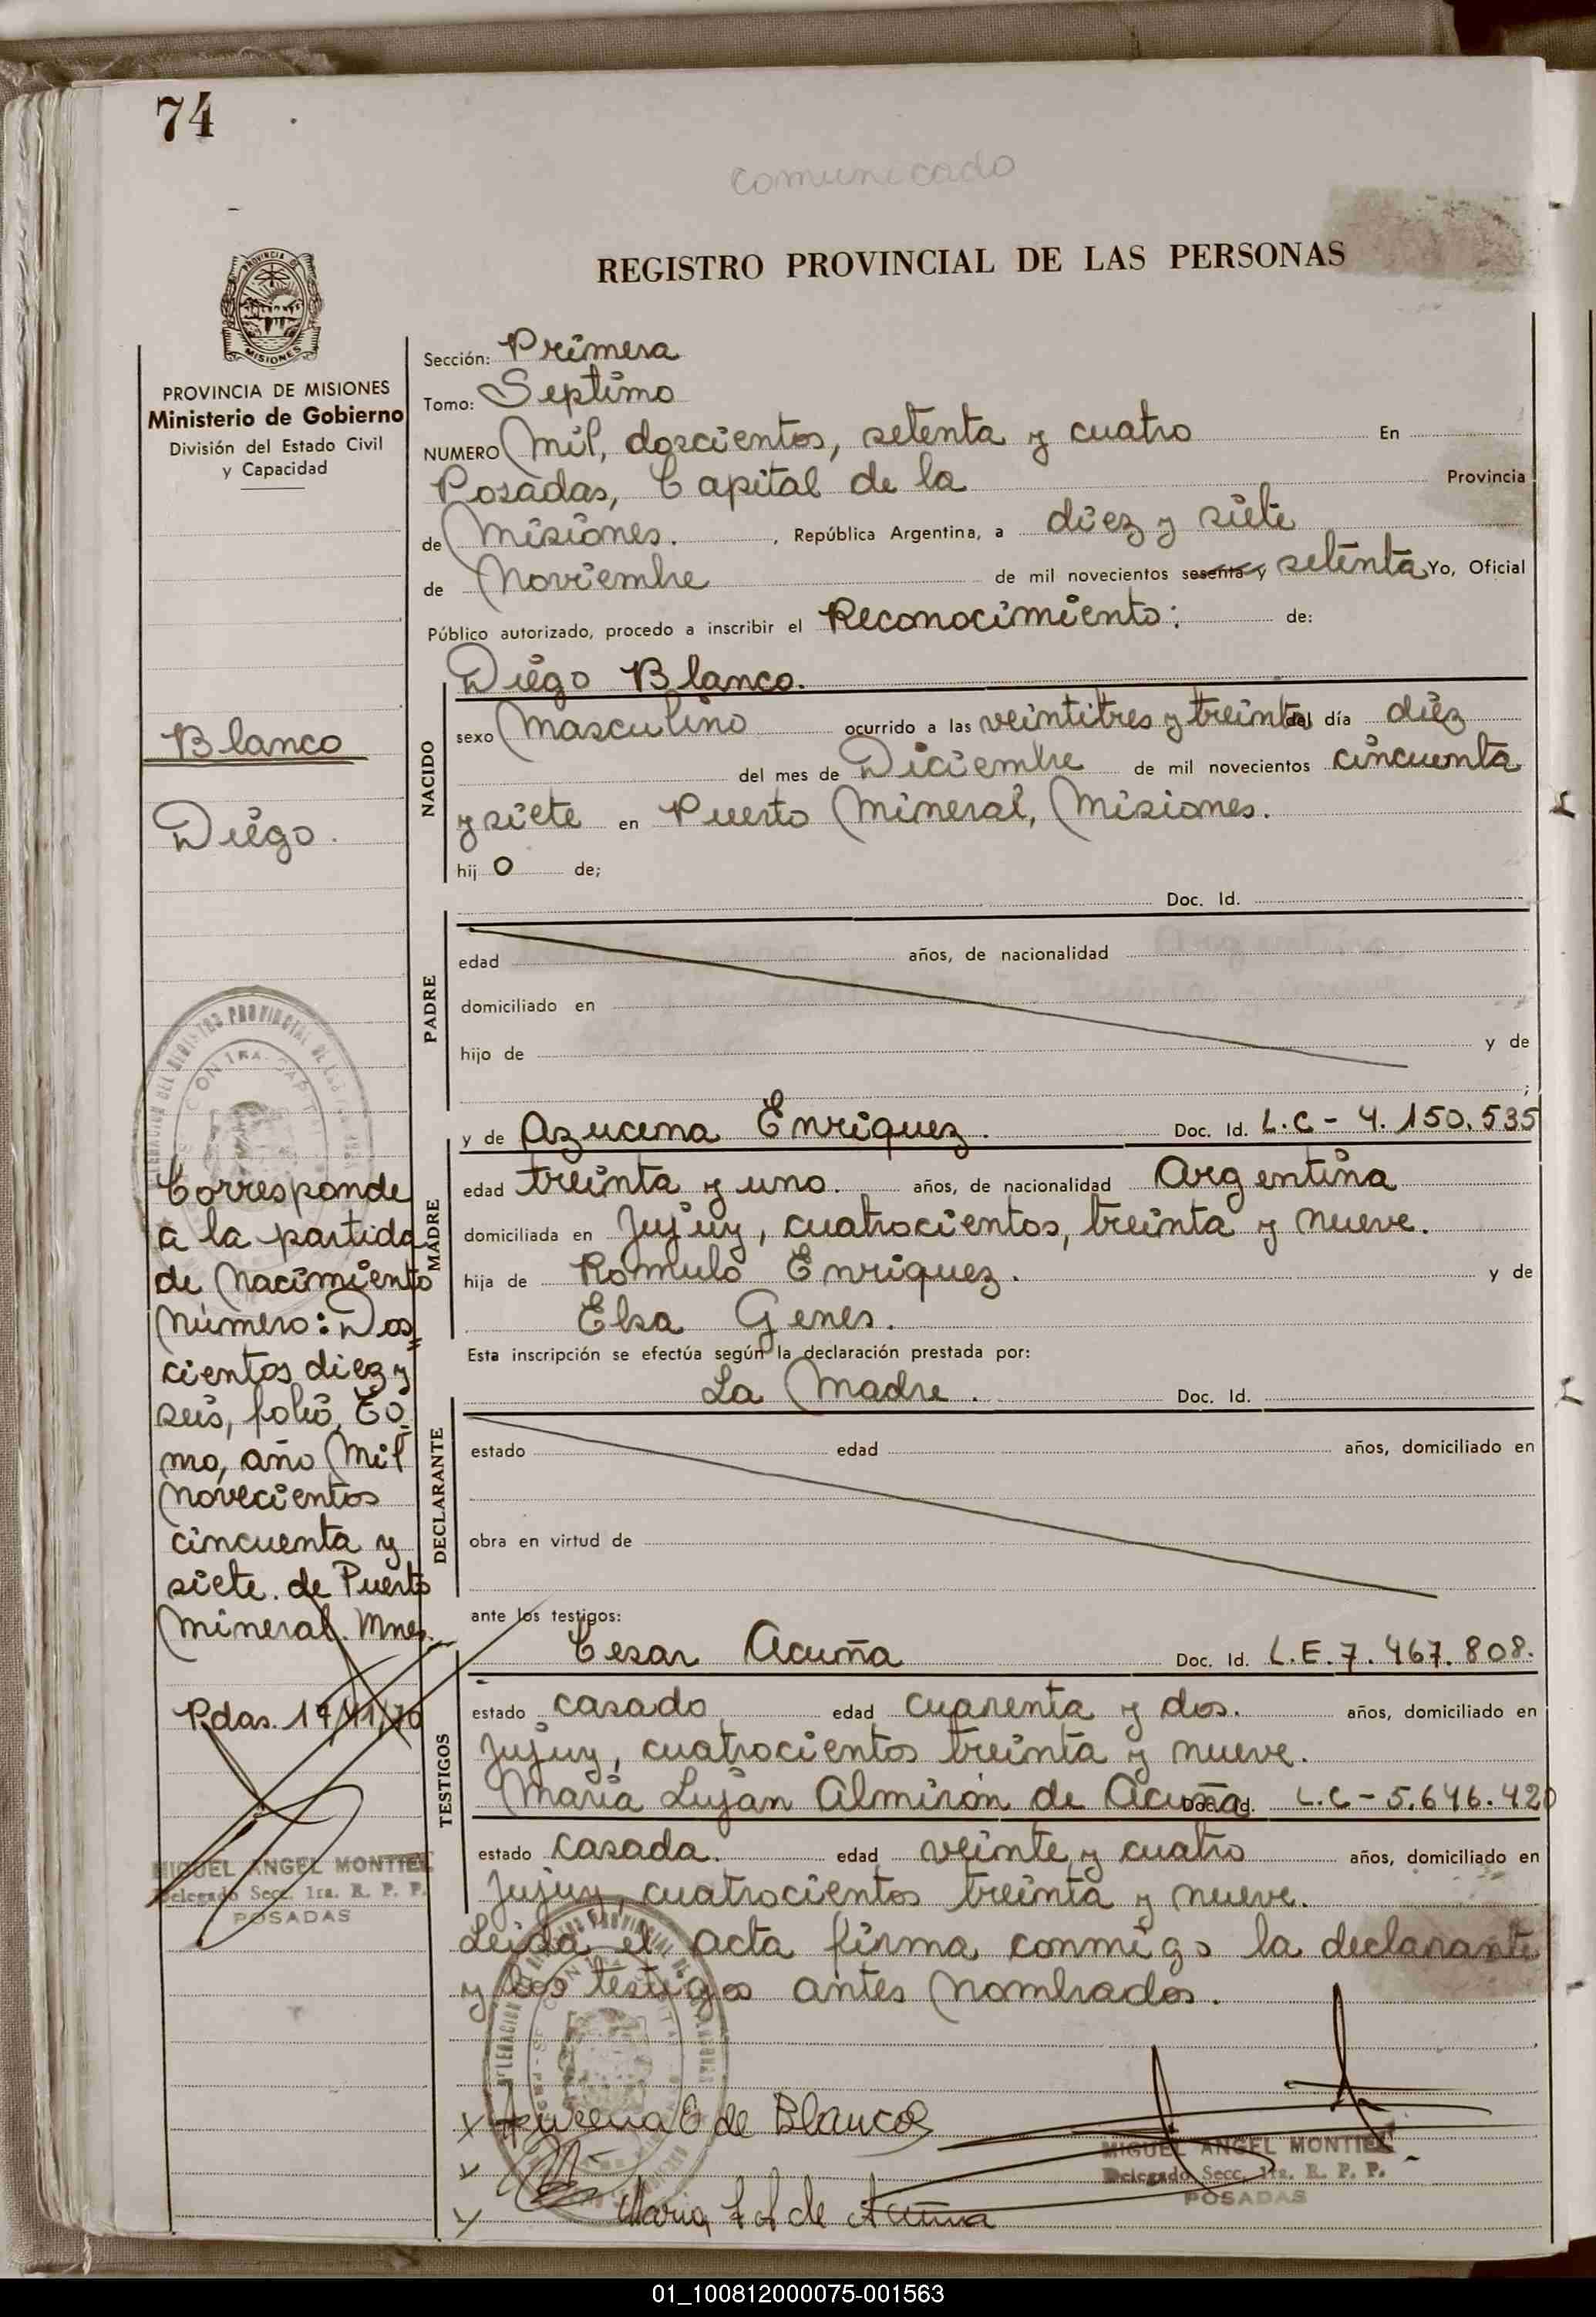 74
comunicado
REGISTRO PROVINCIAL DE LAS PERSONAS
PROVINCIA DE MISIONES
Ministerio de Gobierno
División del Estado Civil
y Capacidad
Sección: Primera
Tomo: Septimo
NUMERO Mil, doscientos, setenta y cuatro En
Posadas, Capital de la Provincia
de Misiones. , República Argentina, a diez y siete
de Noviembre de mil novecientos sesenta y setenta Yo, Oficial
Público autorizado, procedo a inscribir el Reconocimiento: de:
Diego Blanco.
NACIDO
sexo Masculino ocurrido a las veintitres y treinta del día diez
del mes de Diciembre de mil novecientos cincuenta
y siete en Puerto Mineral, Misiones.
hij o de;
Blanco
Diego.
PADRE
Doc. Id.
edad años, de nacionalidad
domiciliado en
hijo de y de
;
MADRE
y de Azucena Enriquez. Doc. Id. L.C - 4.150.535
edad treinta y uno. años, de nacionalidad Argentina
domiciliada en Jujuy, cuatrocientos, treinta y nueve.
hija de Romulo Enriquez. y de
Elsa Genes.
Esta inscripción se efectúa según la declaración prestada por:
La Madre. Doc. Id.
DECLARANTE
estado edad años, domiciliado en
obra en virtud de
ante los testigos:
TESTIGOS
Cesar Acuña Doc. Id. L.E. 7.467.808.
estado casado edad cuarenta y dos. años, domiciliado en
Jujuy, cuatrocientos treinta y nueve.
Maria Luján Almirón de Acuña Doc. Id. L.C - 5.646.420
estado casada. edad veinte y cuatro años, domiciliado en
Jujuy, cuatrocientos treinta y nueve.
Leida el acta firma conmigo la declarante
y los testigos antes nombrados.
Corresponde
a la partida
de Nacimiento
Número: Dos=
cientos diez y
seis, folio, To-
mo, año Mil
Novecientos
cincuenta y
siete. de Puerto
Mineral. Mnes.
Pdas. 17/11/70
MIGUEL ANGEL MONTIEL
Delegado Secc. 1ra. R. P. P.
POSADAS
Azucena E de Blanco
Maria L A de Acuña
MIGUEL ANGEL MONTIEL
Delegado Secc. 1ra. R. P. P.
POSADAS
01_100812000075-001563